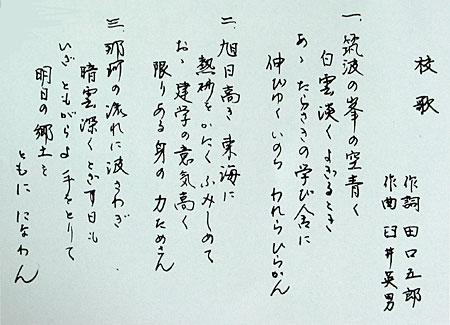 校歌
作詞 田口五郎
作曲 臼井英男
一、筑波の峯の空青く
白雲淡くよぎるとき
あゝたらさきの学び舎に
伸びゆくいのち われらひらかん
二、旭日高き東海に
熱砂をかたくふみしめて
おゝ 建学の意気高く
限りある身の力ためさん
三、那珂の流れに波さわぎ
暗雲深くとざす日も
いざ ともがらよ手をとりて
明日の郷土を
ともに になわん